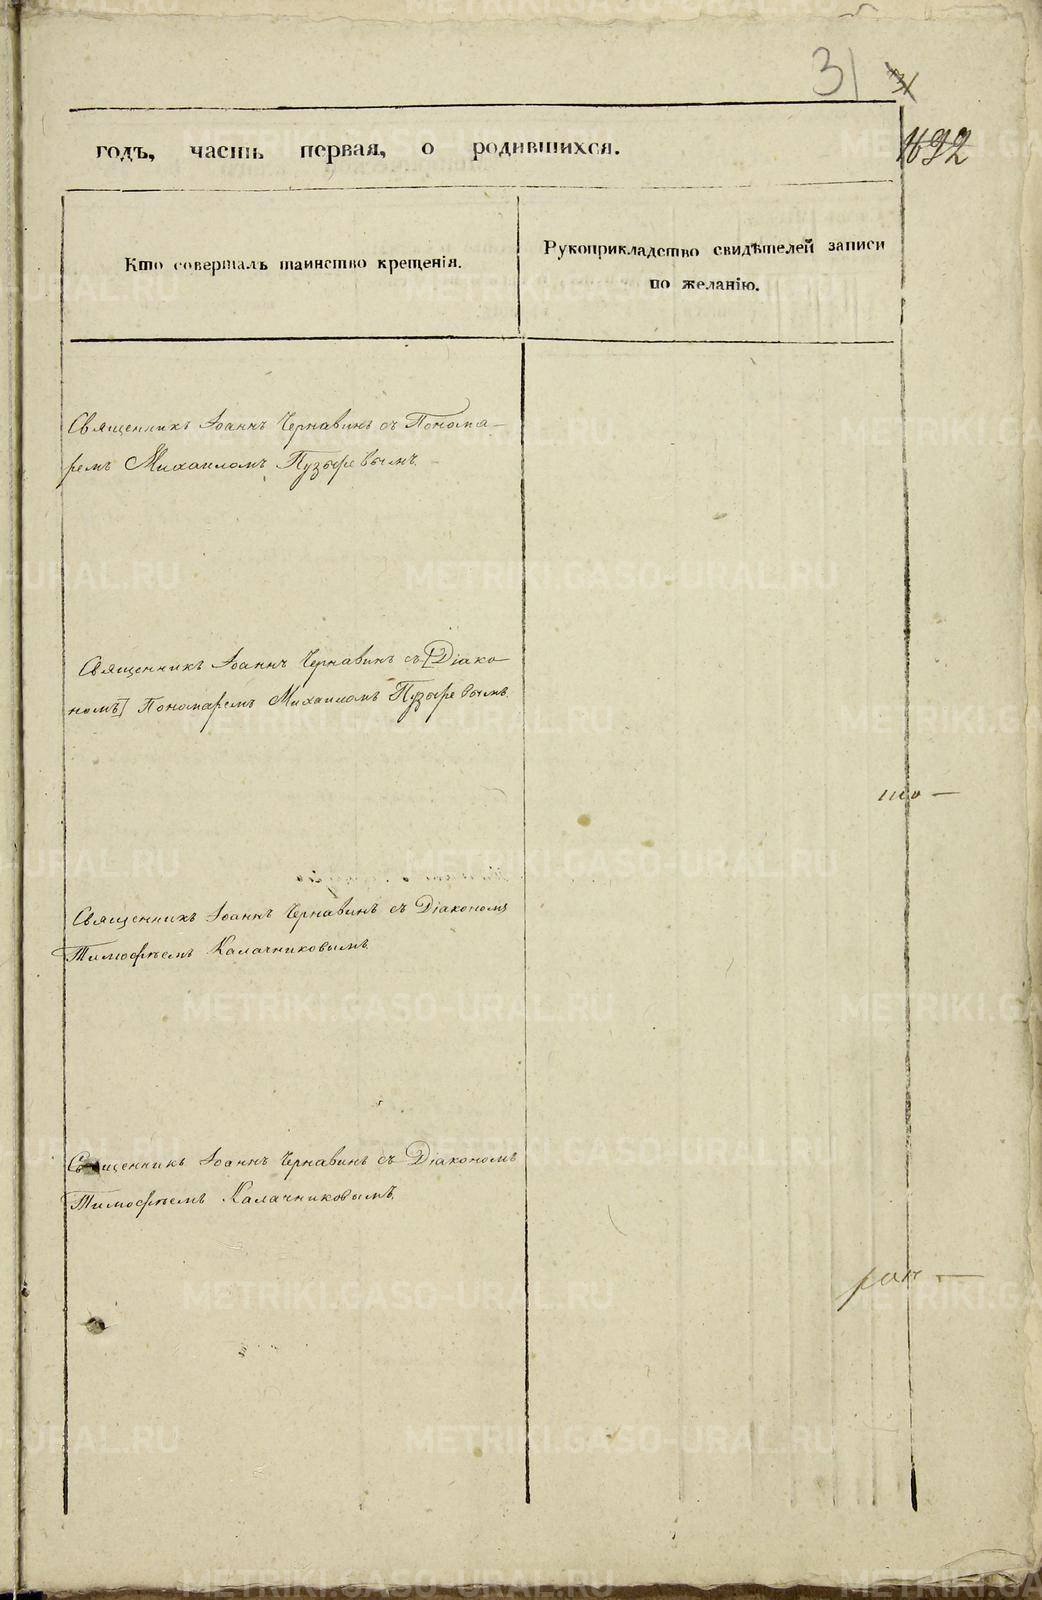 31
годъ, часть первая, о родившихся.
Кто совершалъ таинство крещенія.
Рукоприкладство свидѣтелей записи
по желанію.
Священникъ Іоаннъ Чернавинъ съ Понома-
ремъ Михаиломъ Пузыревымъ.
Священникъ Іоаннъ Чернавинъ съ [Діако-
номъ] Пономаремъ Михаиломъ Пузыревымъ.
Священникъ Іоаннъ Чернавинъ съ Діакономъ
Тимофѣемъ Калачниковымъ.
Священникъ Іоаннъ Чернавинъ съ Діакономъ
Тимофѣемъ Калачниковымъ.
METRIKI.GASO-URAL.RU